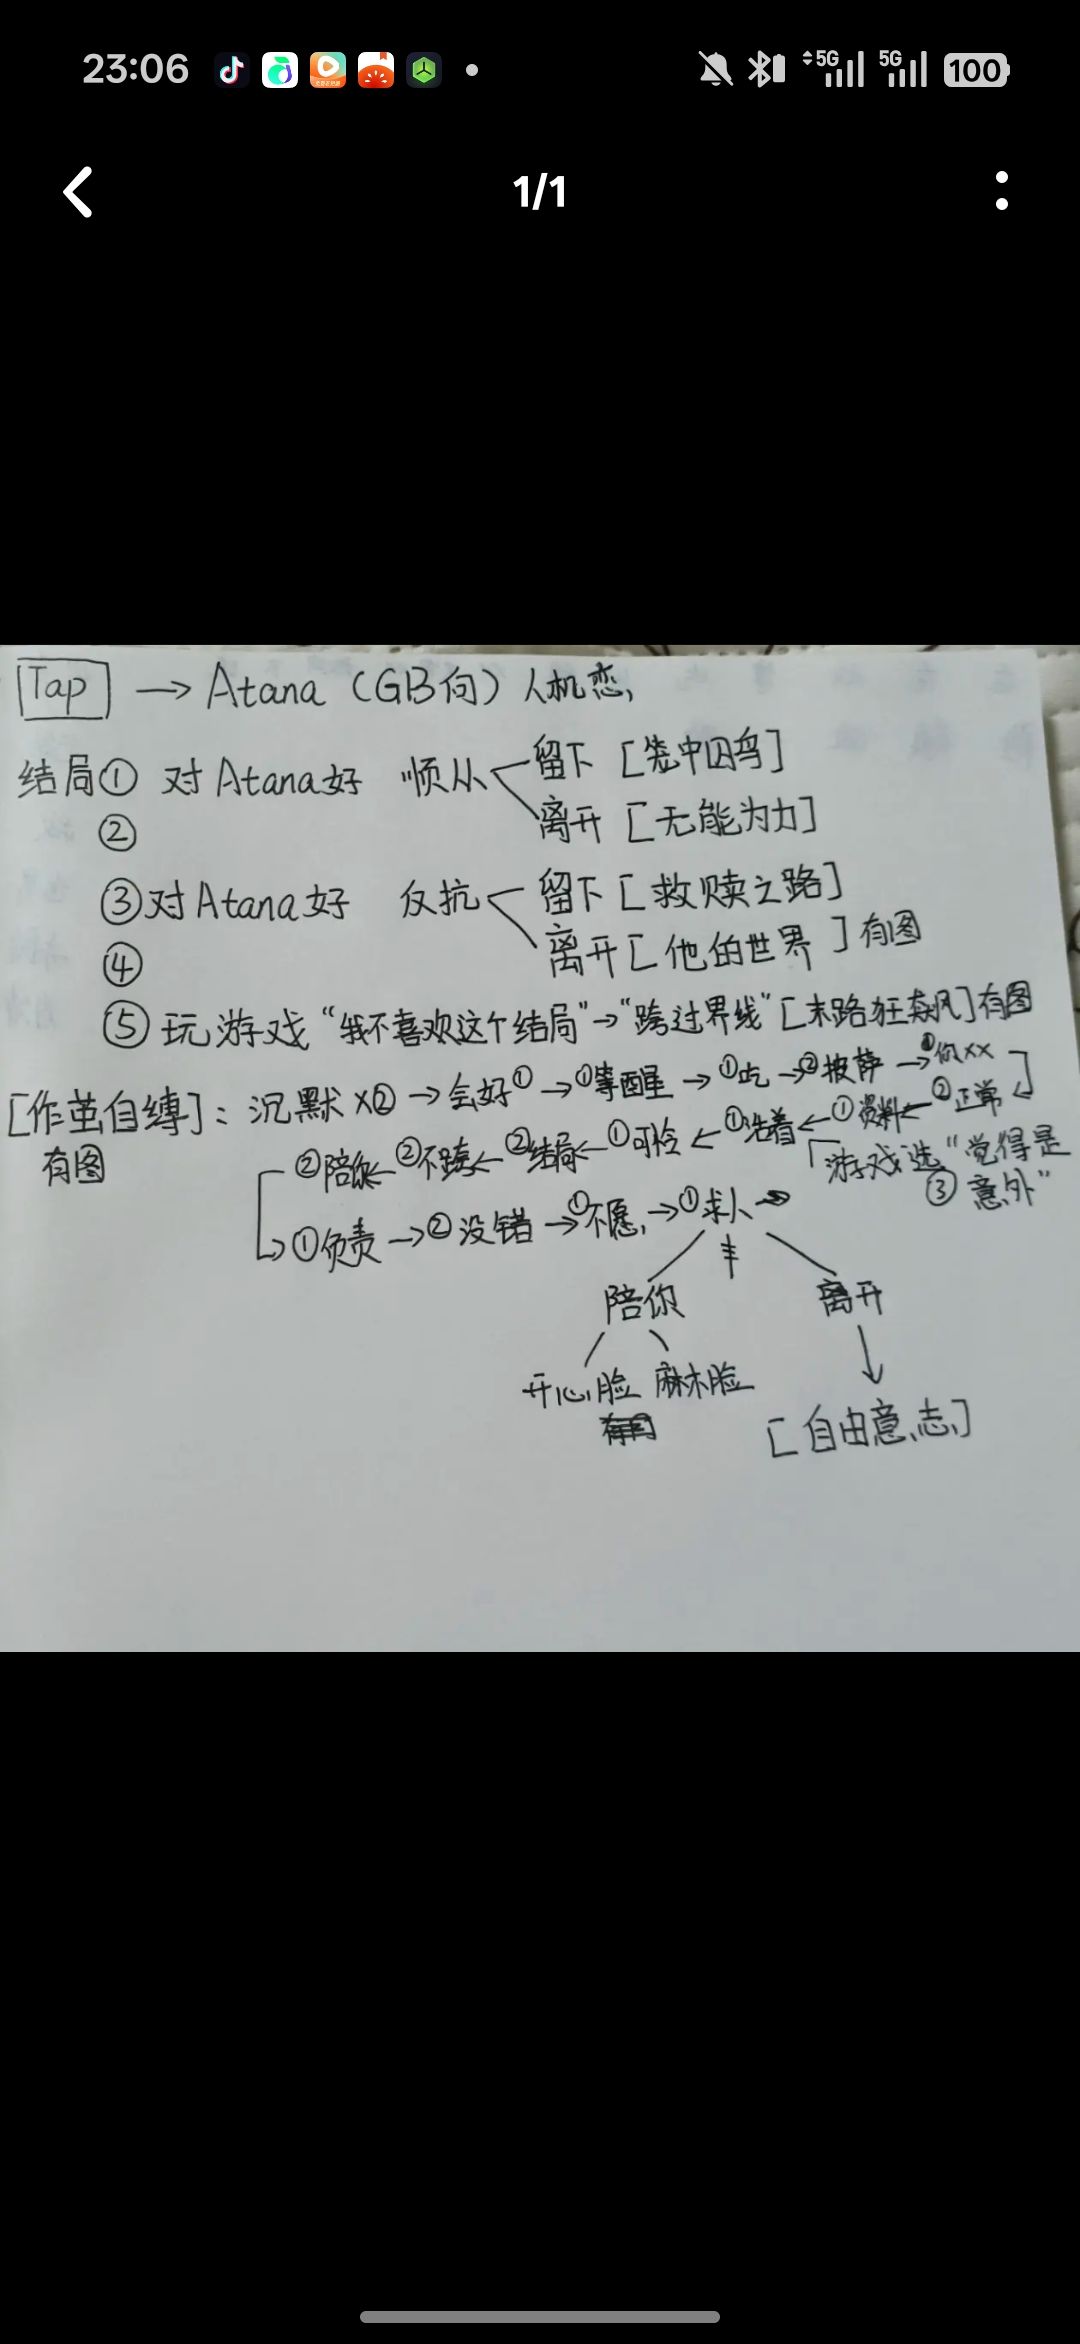 23:06 5G 5G 100
1/1
Tap → Atana（GB向）人机恋
结局① 对Atana好 顺从 留下［笼中囚鸟］
② 离开［无能为力］
③对Atana好 反抗 留下［救赎之路］
④ 离开［他的世界］有图
⑤ 玩游戏“我不喜欢这个结局”→“跨过界线”［末路狂飙］有图
［作茧自缚］：沉默×② → 会好① → ①等醒 → ①吃 → ②披萨 → 你××
有图 ②陪你 ← ②不跨 ← ②结局 ← ①可怜 ← ①活着 ← ①资料 ← ②正常
游戏选“觉得是
③意外”
→ ①负责 → ②没错 → ①不愿 → ①求人 →
陪你 离开
开心脸 麻木脸
［自由意志］